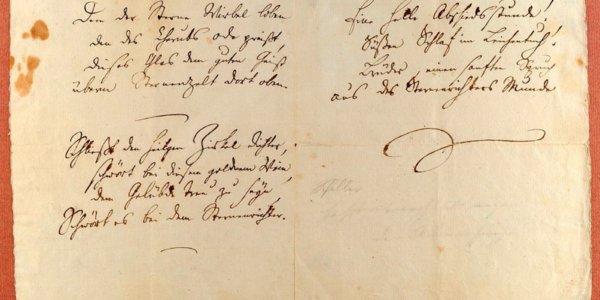 Den der Sterne Wirbel loben
den des Cherubs Ode preißt,
dieses Glas dem guten Geist
überm Sternenzelt dort oben.
Schließt den heilgen Zirkel dichter,
schwört bei diesem goldnem Wein
dem Gelübde treu zu seyn
Schwört es bei dem Sternenrichter.
Eine helle Abschiedsstunde!
Süßen Schlaf im Leichentuch!
Brüder einen sanften Spruch
aus des Munde
Schiller